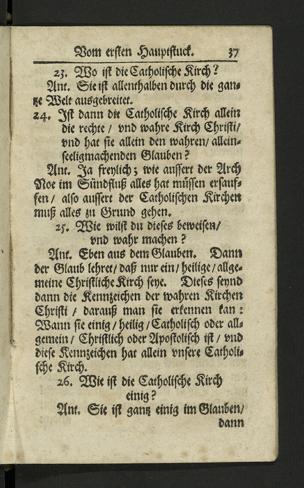 Vom ersten Hauptstuck. 37
23. Wo ist die Catholische Kirch?
Ant. Sie ist allenthalben durch die gan-
tze Welt ausgebreitet.
24. Ist dann die Catholische Kirch allein
die rechte / vnd wahre Kirch Christi /
vnd hat sie allein den wahren / allein-
seeligmachenden Glauben?
Ant. Ja freylich; wie aussert der Arch
Noe im Sündfluß alles hat müssen ersauf-
fen / also aussert der Catholischen Kirchen
muß alles zu Grund gehen.
25. Wie wilst du dieses beweisen /
vnd wahr machen?
Ant. Eben aus dem Glauben. Dann
der Glaub lehret / daß nur ein / heilige / allge-
meine Christliche Kirch seye. Dieses seynd
dann die Kennzeichen der wahren Kirchen
Christi / darauß man sie erkennen kan:
Wann sie einig / heilig / Catholisch oder all-
gemein / Christlich oder Apostolisch ist / vnd
diese Kennzeichen hat allein vnsere Catholi-
sche Kirch.
26. Wie ist die Catholische Kirch
einig?
Ant. Sie ist gantz einig im Glauben /
dann